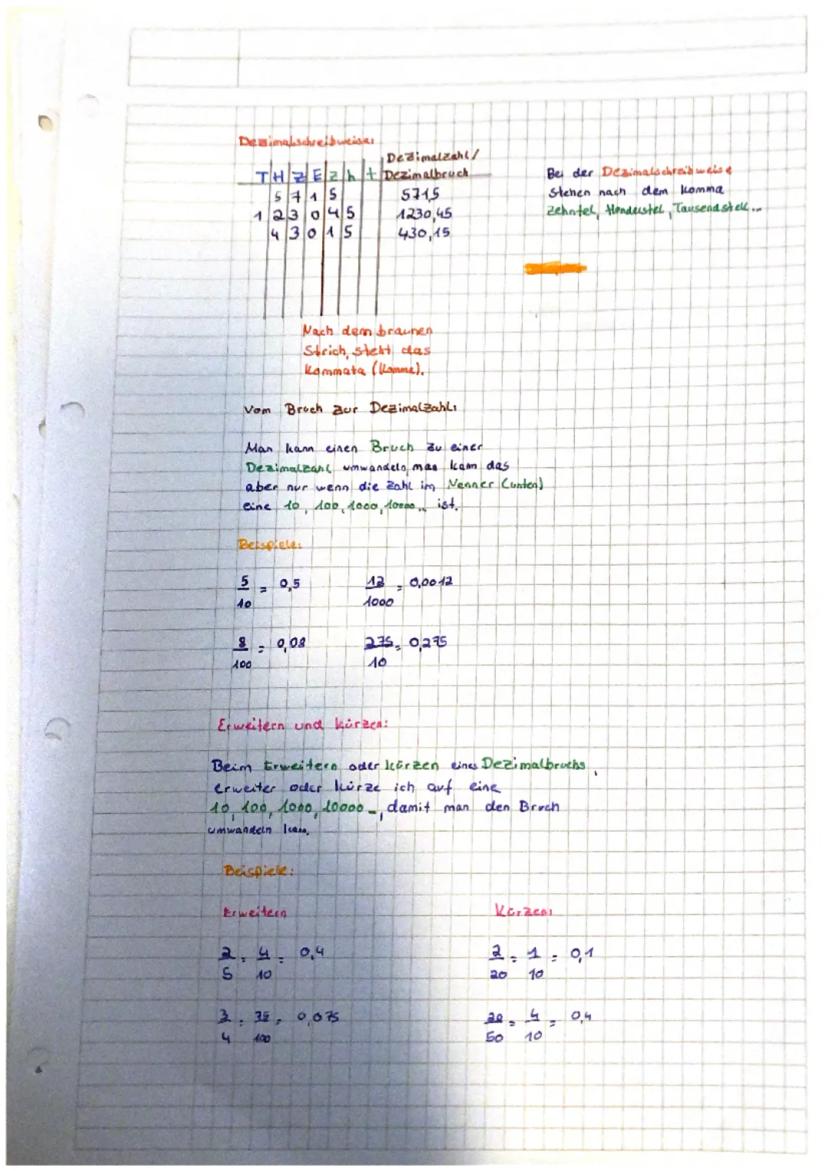 Dezimalschreibweise:
Dezimalzahl/
T H Z E z h t Dezimalbruch
5 7 1 5 571,5
1 2 3 0 4 5 1230,45
4 3 0 1 5 430,15
Bei der Dezimalschreibweise
stehen nach dem Komma
Zehntel, Hunderstel, Tausendstel...
Nach dem braunen
Strich, steht das
Kommata (Komma).
Vom Bruch zur Dezimalzahl:
Man kann einen Bruch zu einer
Dezimalzahl umwandeln, man kann das
aber nur wenn die Zahl im Nenner (unten)
eine 10, 100, 1000, 10000... ist.
Beispiele:
5/10 = 0,5 12/1000 = 0,0012
8/100 = 0,08 275/10 = 0,275
Erweitern und kürzen:
Beim Erweitern oder kürzen eines Dezimalbruchs,
erweiter oder kürze ich auf eine
10, 100, 1000, 10000..., damit man den Bruch
umwandeln kann.
Beispiele:
Erweitern Kürzen:
2/5 = 4/10 = 0,4 2/20 = 1/10 = 0,1
3/4 = 75/100 = 0,075 20/50 = 4/10 = 0,4